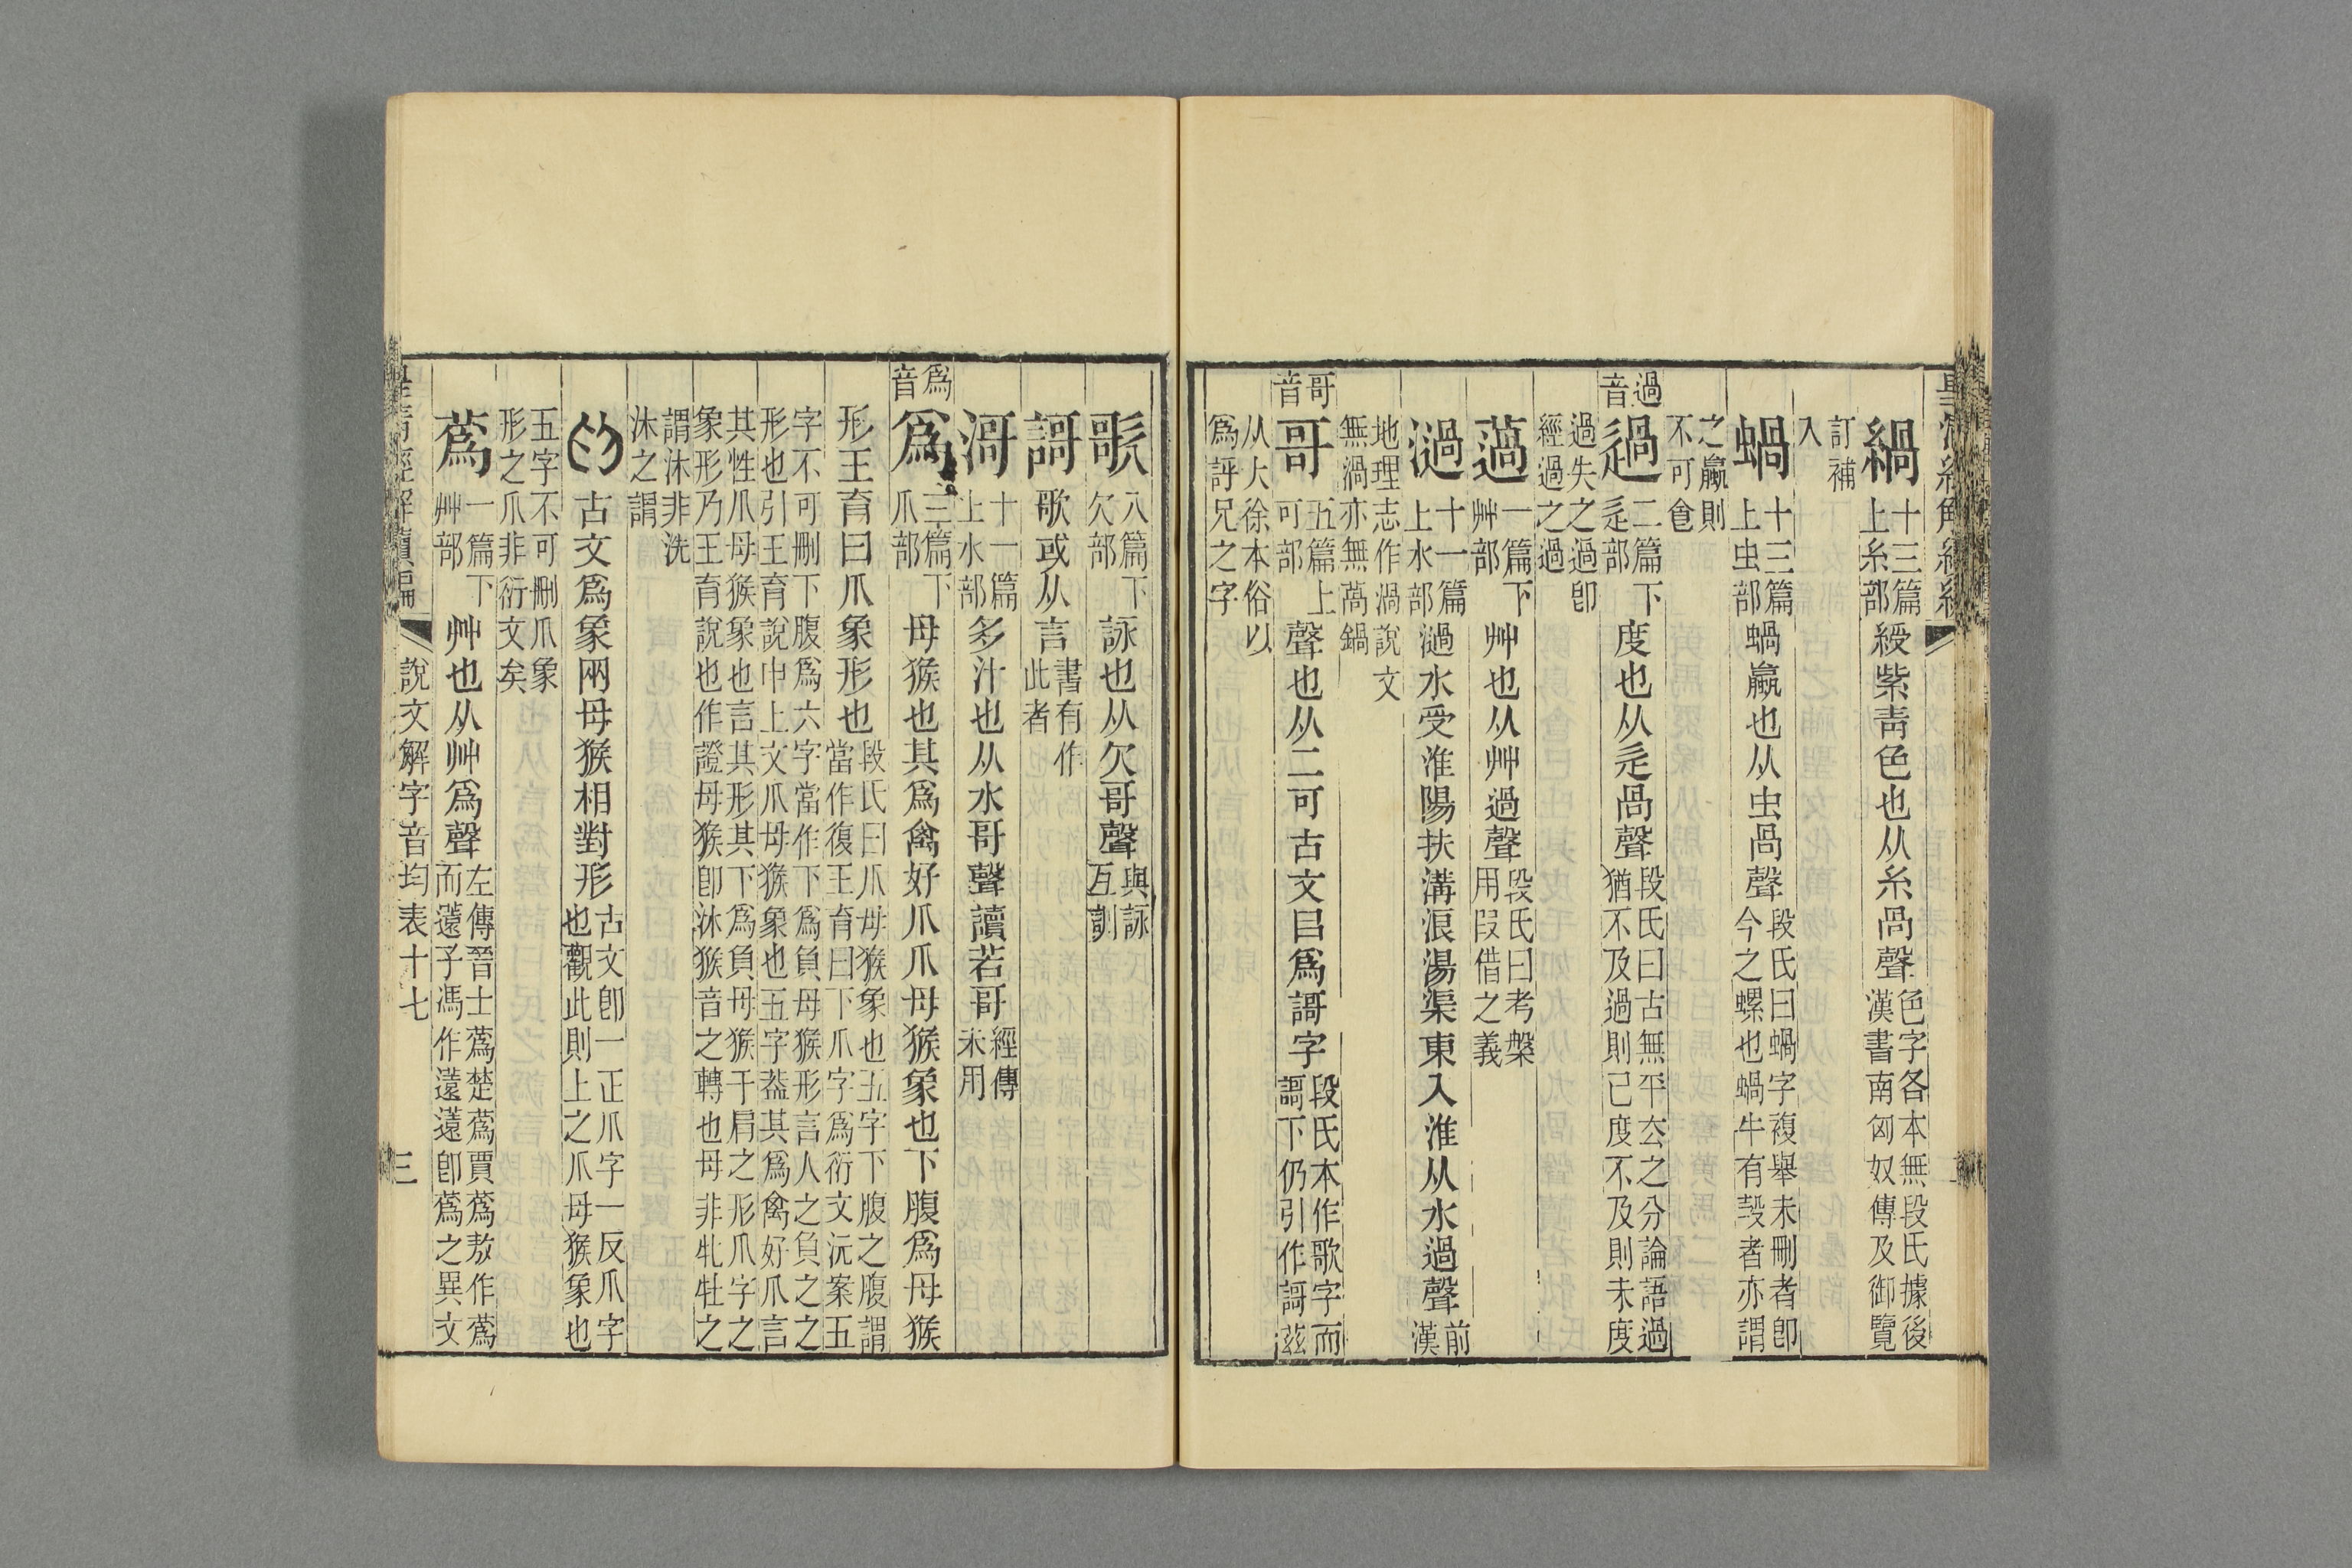 緺十三篇上糸部綬紫青色也从糸咼聲色字各本無段氏據後漢書南匈奴傳及御覽
訂補入
蝸十三篇上虫部蝸蠃也从虫咼聲段氏曰蝸字複舉未刪者卽今之螺也蝸牛有㱿者亦謂
之蠃則不可㑹
過音
過二篇下辵部度也从辵咼聲段氏曰古無平厺之分論語過猶不及過則已度不及則未度
過失之過卽經過之過
薖一篇下艸部艸也从艸過聲段氏曰考槃用叚借之義
濄十一篇上水部濄水受淮陽扶溝浪湯渠東入淮从水過聲前漢
地理志作渦說文無渦亦無萵鍋
哥音
哥五篇上可部聲也从二可古文㠯爲謌字段氏本作歌字而謌下仍引作謌茲
从大徐本俗以爲謼兄之字
歌八篇下欠部詠也从欠哥聲與詠互訓
謌歌或从言書有作此者
滒十一篇上水部多汁也从水哥聲讀若哥經傳未用
爲音
爲三篇下爪部母猴也其爲禽好爪爪母猴象也下腹爲母猴
形王育曰爪象形也段氏曰爪母猴象也五字下腹之腹謂當作復王育曰下爪字爲衍文沅案五
字不可刪下腹爲六字當作下爲負母猴形言人之負之之形也引王育說申上文爪母猴象也五字葢其爲禽好爪言
其性爪母猴象也言其形其下爲負母猴于肩之形爪字之象形乃王育說也作證母猴卽沐猴音之轉也母非牝牡之
謂沐非洗沐之謂
古文爲象兩母猴相對形古文卽一正爪字一反爪字也觀此則上之爪母猴象也
五字不可刪爪象形之爪非衍文矣
蔿一篇下艸部艸也从艸爲聲左傳晉士蔿楚蔿賈蔿敖作蔿而薳子馮作薳薳卽蔿之異文
皇清經解續編
說文解字音均表十七
三